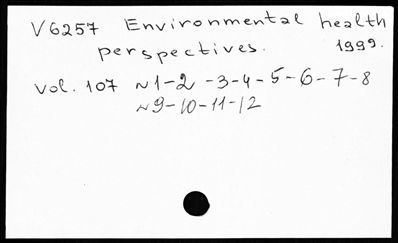 V6257 Environmental health
perspectives. 1999.
Vol. 107 ~1-2-3-4-5-6-7-8
~9-10-11-12